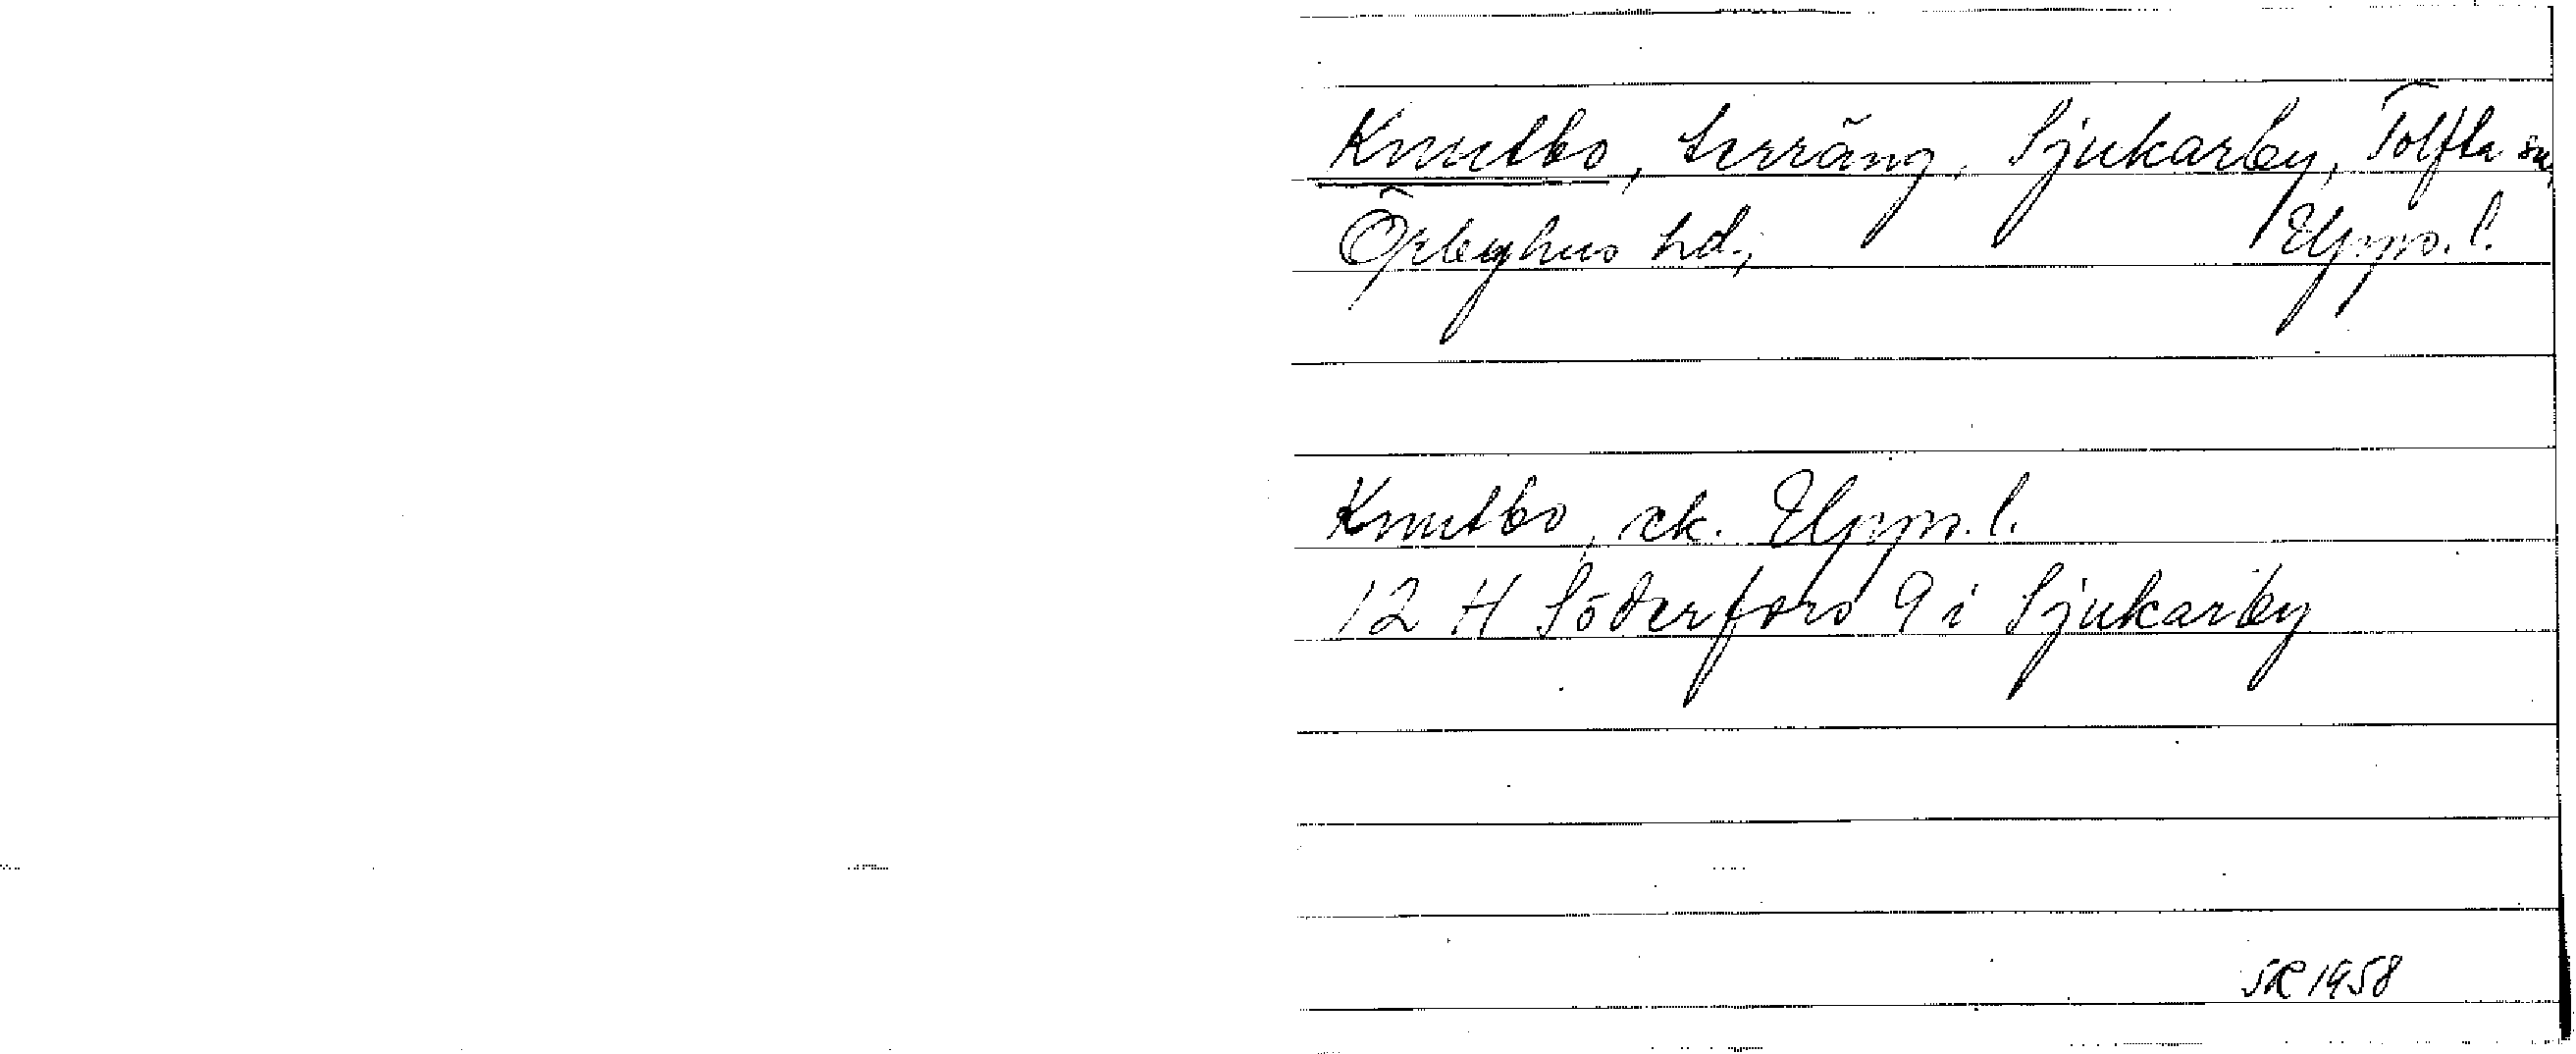 Knutbo, terräng, Sjukarby, Tolfta sn,
Örbyhus hd., Upps. l.
Knutbo, ek. Upps. l.
12 H Söderfors 9 i Sjukarby
SR 1958